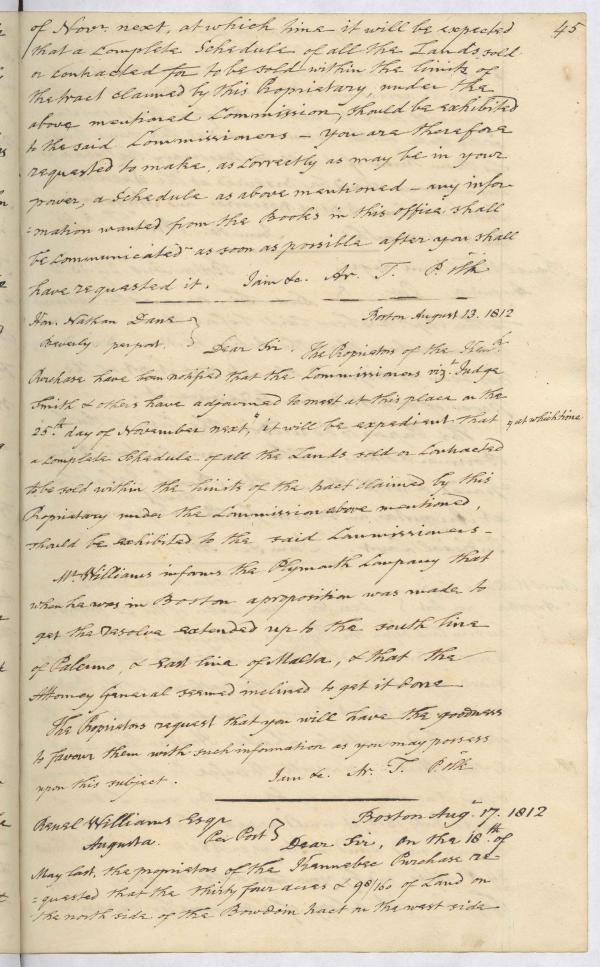 45
of Novr. next, at which time it will be expected
that a complete Schedule of all the Lands sold
or contracted for to be sold within the limits of
the tract claimed by this Proprietary, under the
above mentioned Commission, should be exhibited
to the said Commissioners – you are therefore
requested to make, as correctly as may be in your
power, a Schedule as above mentioned – any infor-
=mation wanted from the Books in this office shall
be communicated as soon as possible after you shall
have requested it. I am &c. Ar. T. P. Clk
Hon. Nathan Dane } Boston August 13. 1812
Beverly per post. } Dear Sir. The Proprietors of the Kenk.
Purchase have been notified that the Commissioners vizt. Judge
Smith & others have adjourned to meet at this place on the
25th. day of November next, it will be expedient that
y at which time
a complete Schedule of all the Lands sold or Contracted
to be sold within the limits of the tract claimed by this
Proprietary under the Commission above mentioned,
should be exhibited to the said Commissioners –
Mr. Williams informs the Plymouth Company that
when he was in Boston a proposition was made to
get the resolve extended up to the south line
of Palermo, & East line of Malta, & that the
Attorney General seemed inclined to get it done
The Proprietors request that you will have the goodness
to favour them with such information as you may possess
upon this subject. I am &c. Ar. T. P. Clk
Reuel Williams Esqr Boston Augt. 17. 1812
Augusta. Per Post } Dear Sir, On the 18th. of
May last, the proprietors of the Kennebec Purchase re-
=quested that the thirty four acres & 98/160 of Land on
the north side of the Bowdoin tract on the west side